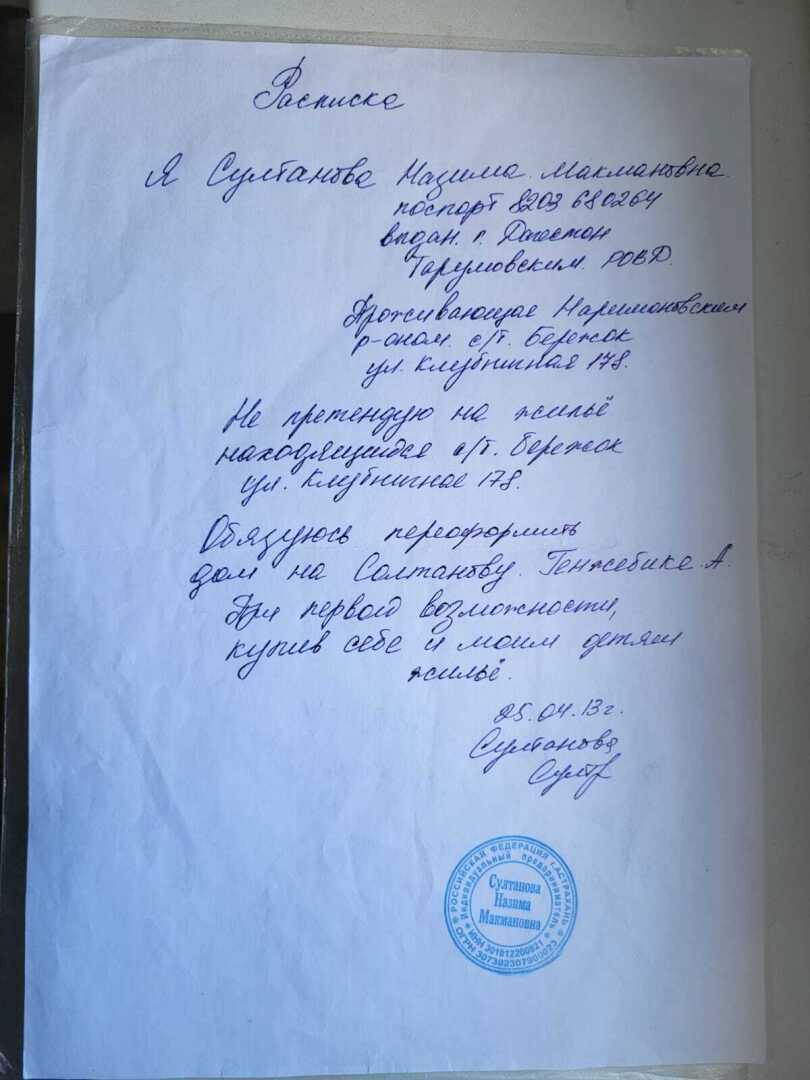 Расписка
Я Султанова Назима Макмановна.
паспорт 8203 680264
выдан. г. Дагестан
Тарумовским. РОВД.
Проживающая Наримановским
р-оном. с/т. Бережок
ул. Клубничная 178.
Не претендую на жильё
находящийся с/т. Бережок
ул. Клубничная 178.
Обязуюсь переоформить
дом на Солтанову. Генжебике. А.
При первой возможности,
купив себе и моим детям
жильё.
25.04.13г.
Султанова
РОССИЙСКАЯ ФЕДЕРАЦИЯ г.АСТРАХАНЬ
Индивидуальный предприниматель
Султанова
Назима
Макмановна
ИНН 301612200821
ОГРН 307302307900023